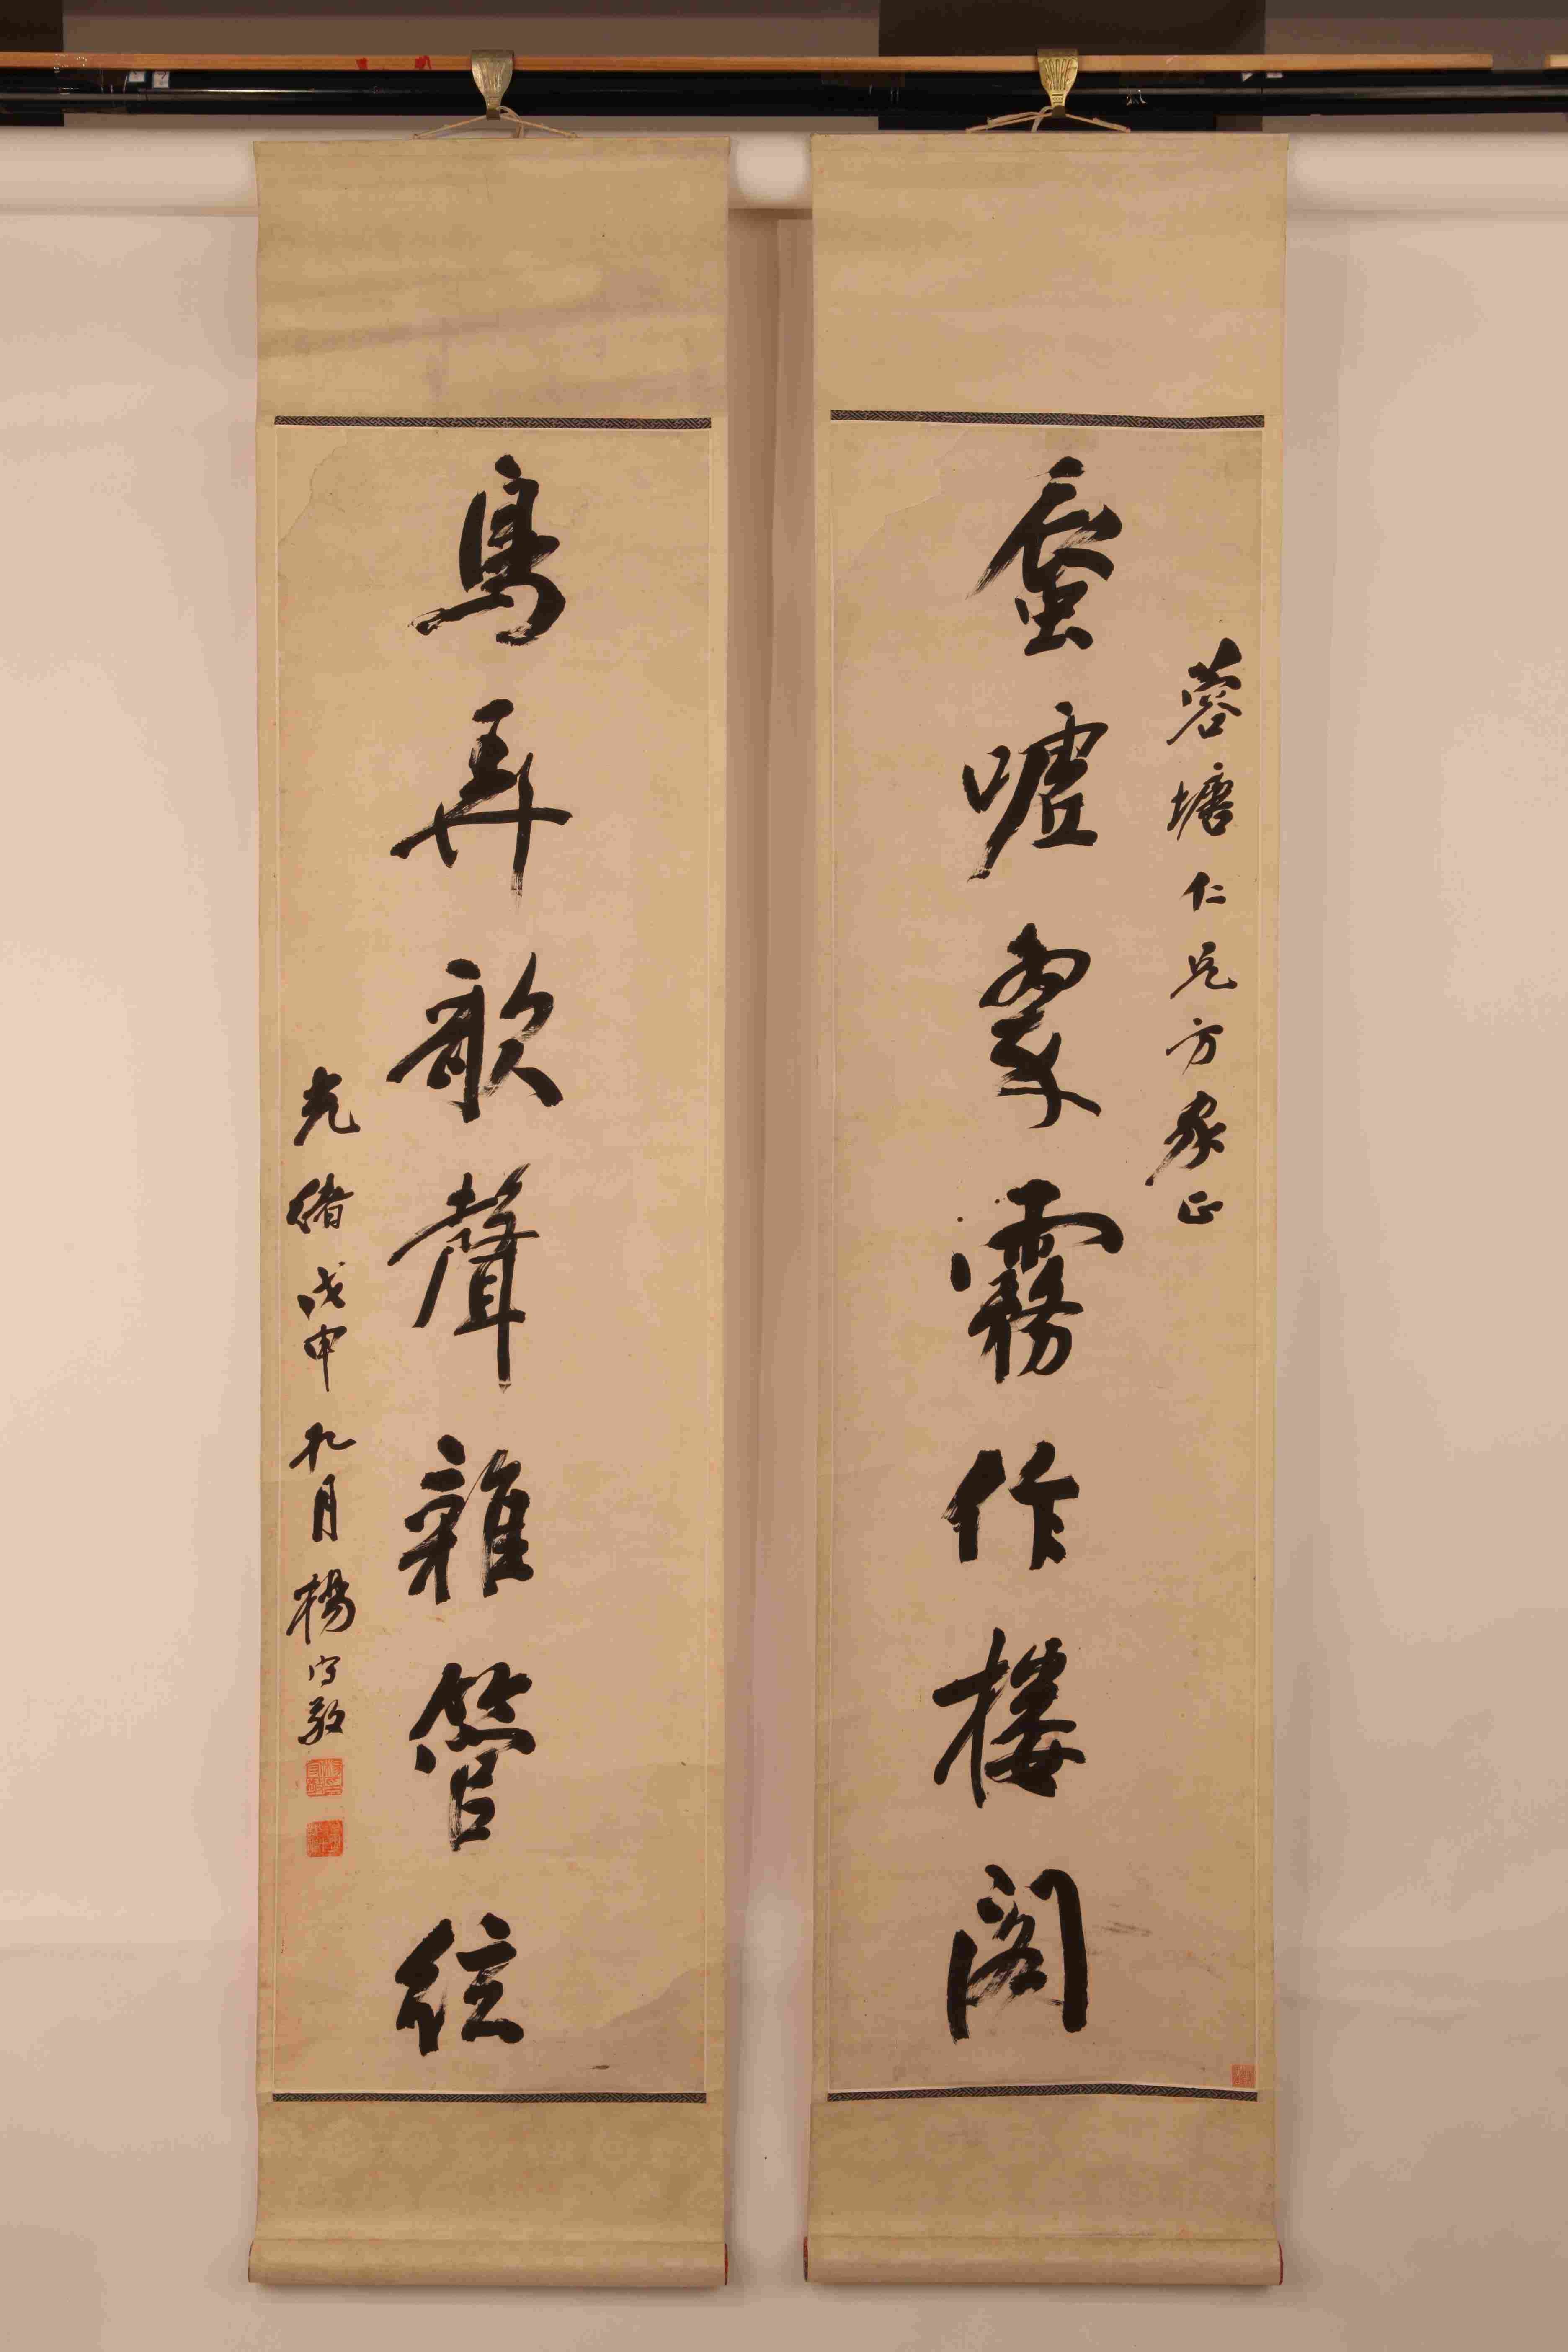 蓉塘仁兄方家正
蜃嘘雾霧作樓閣
鳥弄歌聲雜管絃
光緒戊申九月楊守敬